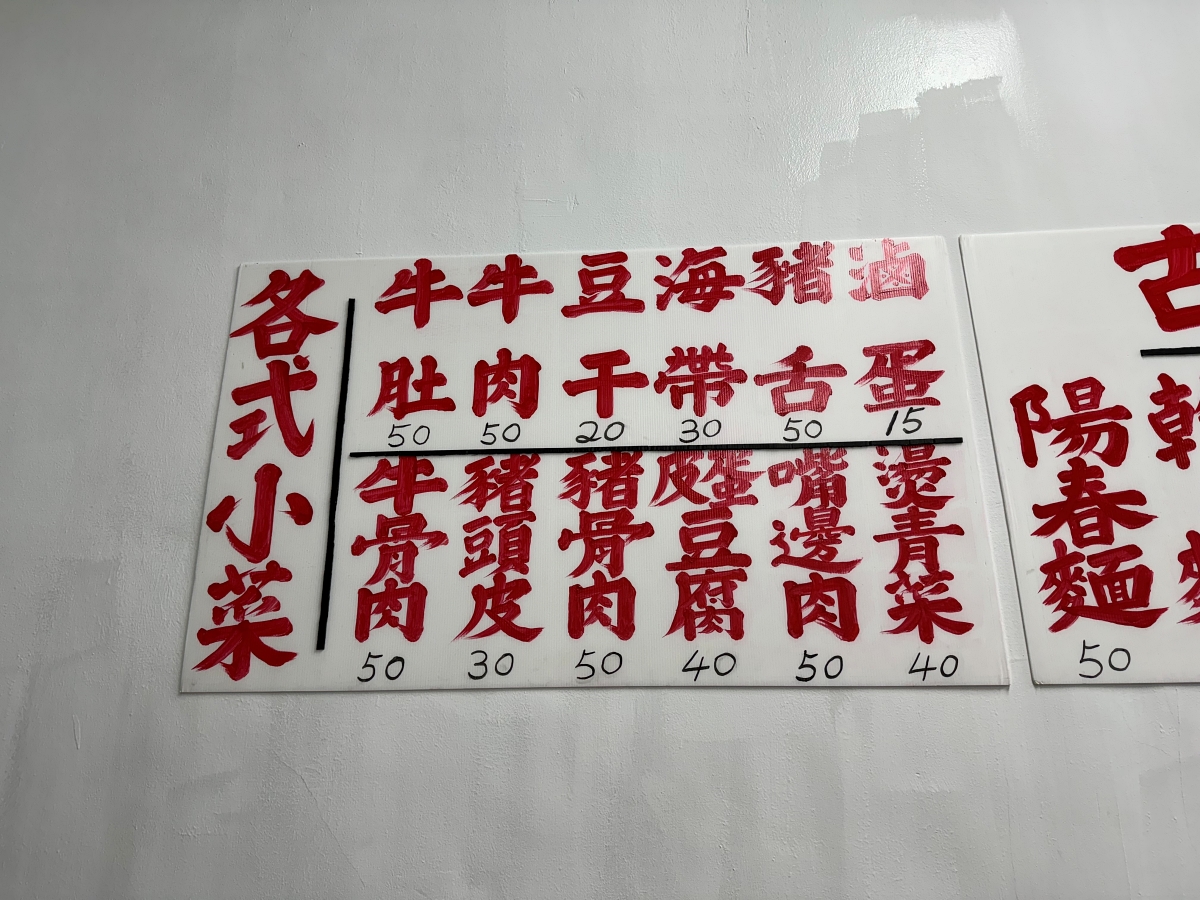 各式小菜
牛肚 50
牛肉 50
豆干 20
海帶 30
豬舌 50
滷蛋 15
牛骨肉 50
豬頭皮 30
豬骨肉 50
皮蛋豆腐 40
嘴邊肉 50
燙青菜 40
古
陽春麵 50